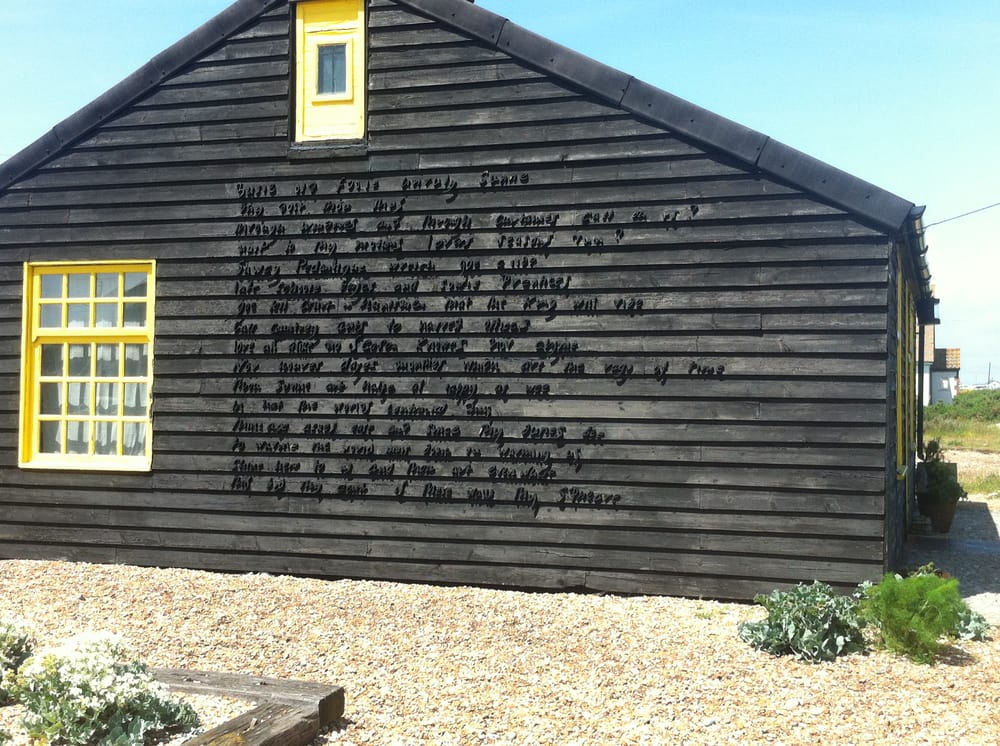 Busie old Foole unruly Sunne
Why dost thou thus
through windowes and through curtaines call on us?
must to thy motions lovers seasons run?
Sawcy Pedantique wretch goe chide
late schoole boyes and sowre Prentices
goe tell Court-Huntsmen that the King will ride
Call Countrey ants to harvest offices
love all alike no season knowes nor clyme
Nor houres dayes months which are the rags of time
Thou Sunne art halfe as happy as wee
In that the world's contracted thus
Thine age askes ease and since thy duties bee
to warme the world that's done in warming us
Shine here to us and thou art everywhere
this bed thy center is these walls thy spheare